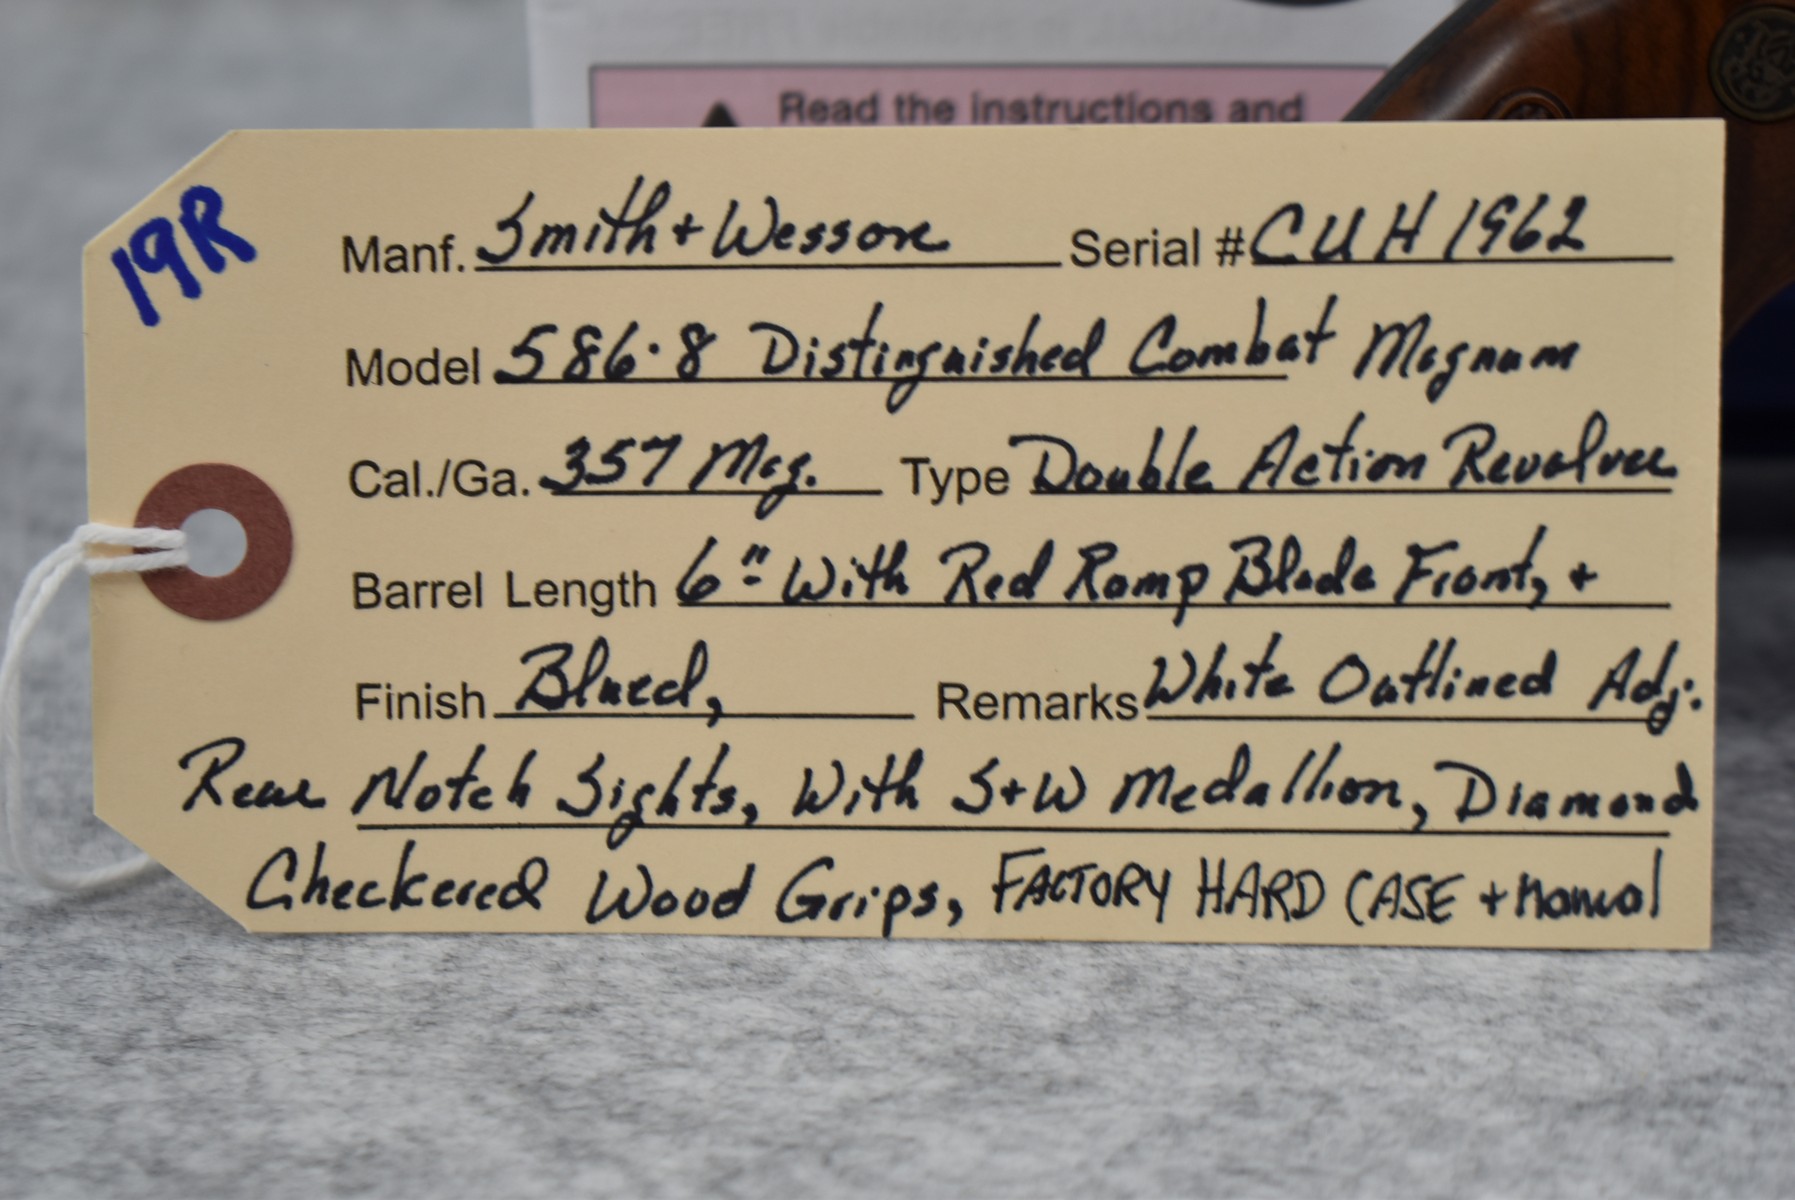 Read the instructions and
19R
Manf. Smith + Wesson Serial # CUH1962
Model 586-8 Distinguished Combat Magnum
Cal./Ga. 357 Mag. Type Double Action Revolver
Barrel Length 6" With Red Ramp Blade Front, +
Finish Blued, Remarks White Outlined Adj.
Rear Notch Sights, With S+W Medallion, Diamond
Checkered Wood Grips, FACTORY HARD CASE + Manual